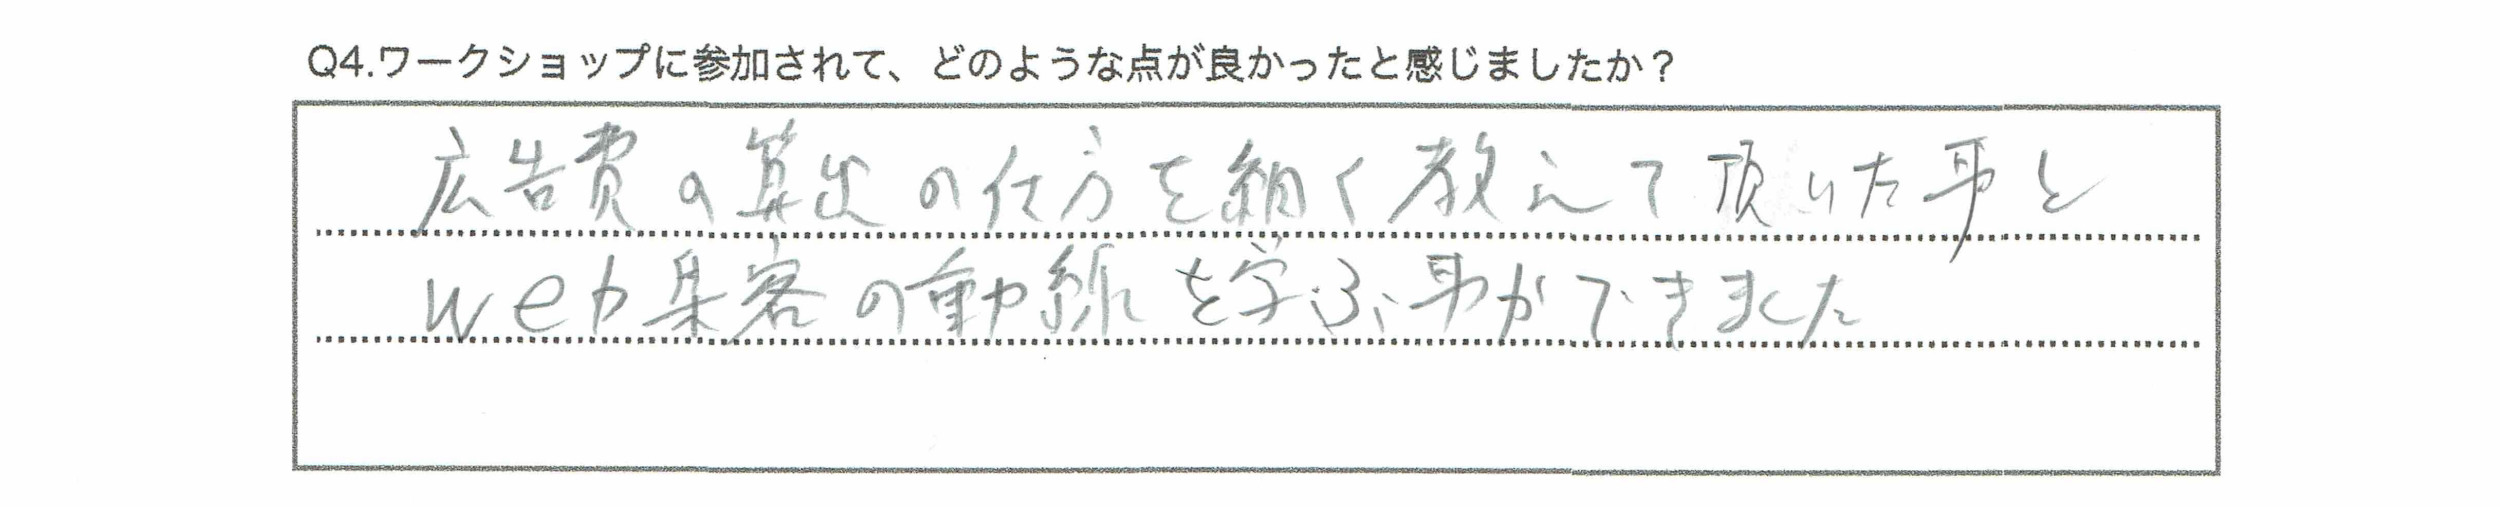 Q4.ワークショップに参加されて、どのような点が良かったと感じましたか？
広告費の算出の仕方を細く教えて頂いた事と
web集客の動線を学ぶ事ができました